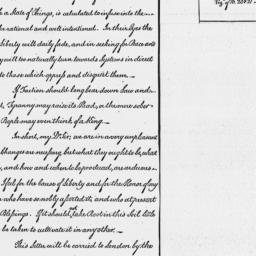 a State of Things, is calculated to infuse into the
rational and well intentioned. In their Eyes the
Liberty will daily fade, and in seeking for Peace and
will too naturally turn towards Systems in direct
to those which oppress and disquiet them.
If Faction should long bear down Law and
Tyranny may raise its Head, or the more sober
People may even think of a King.
In short, my D.r Sir; we are in a very unpleasant
Changes are necessary, but what they ought to be, what
and how and when to be produced, are arduous
I feel for the Cause of Liberty and for the Honor of my
who have so nobly asserted it, and who at present
Blessings. If it should not take Root in this Soil little
be taken to cultivate it in any other.
This Letter will be carried to London by the